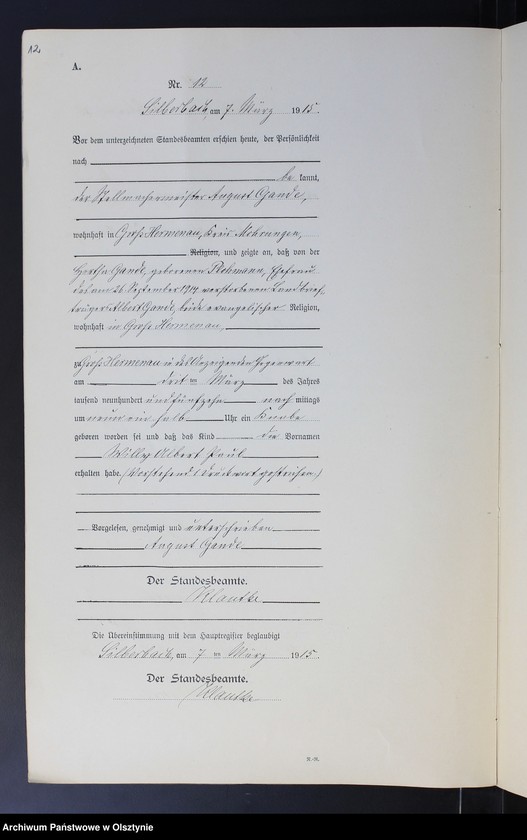 12.
A.
Nr. 12
Silberbach, am 7. März 1915.
Vor dem unterzeichneten Standesbeamten erschien heute, der Persönlichkeit
nach
be kannt,
der Stellmachermeister August Gande,
wohnhaft in Groß Hermenau, Kreis Mohrungen,
Religion, und zeigte an, daß von der
Gande, geborenen Ehefrau
des am 26. September 1914 verstorbenen Landbrief-
trägers Albert Gande, beide evangelischer Religion,
wohnhaft in Groß Hermenau,
zu Groß Hermenau in des Anzeigenden Gegenwart
am drei ten März des Jahres
tausend neunhundert und fünfzehn nach mittags
um neun ein halb Uhr ein Knabe
geboren worden sei und daß das Kind die Vornamen
Willy Albert Paul
erhalten habe. (Vorstehend 1 Druckwort gestrichen.)
Vorgelesen, genehmigt und unterschrieben
August Gande
Der Standesbeamte.
Klautke
Die Übereinstimmung mit dem Hauptregister beglaubigt
Silberbach, am 7 ten März 1915.
Der Standesbeamte.
Klautke
R.-R.
Archiwum Państwowe w Olsztynie